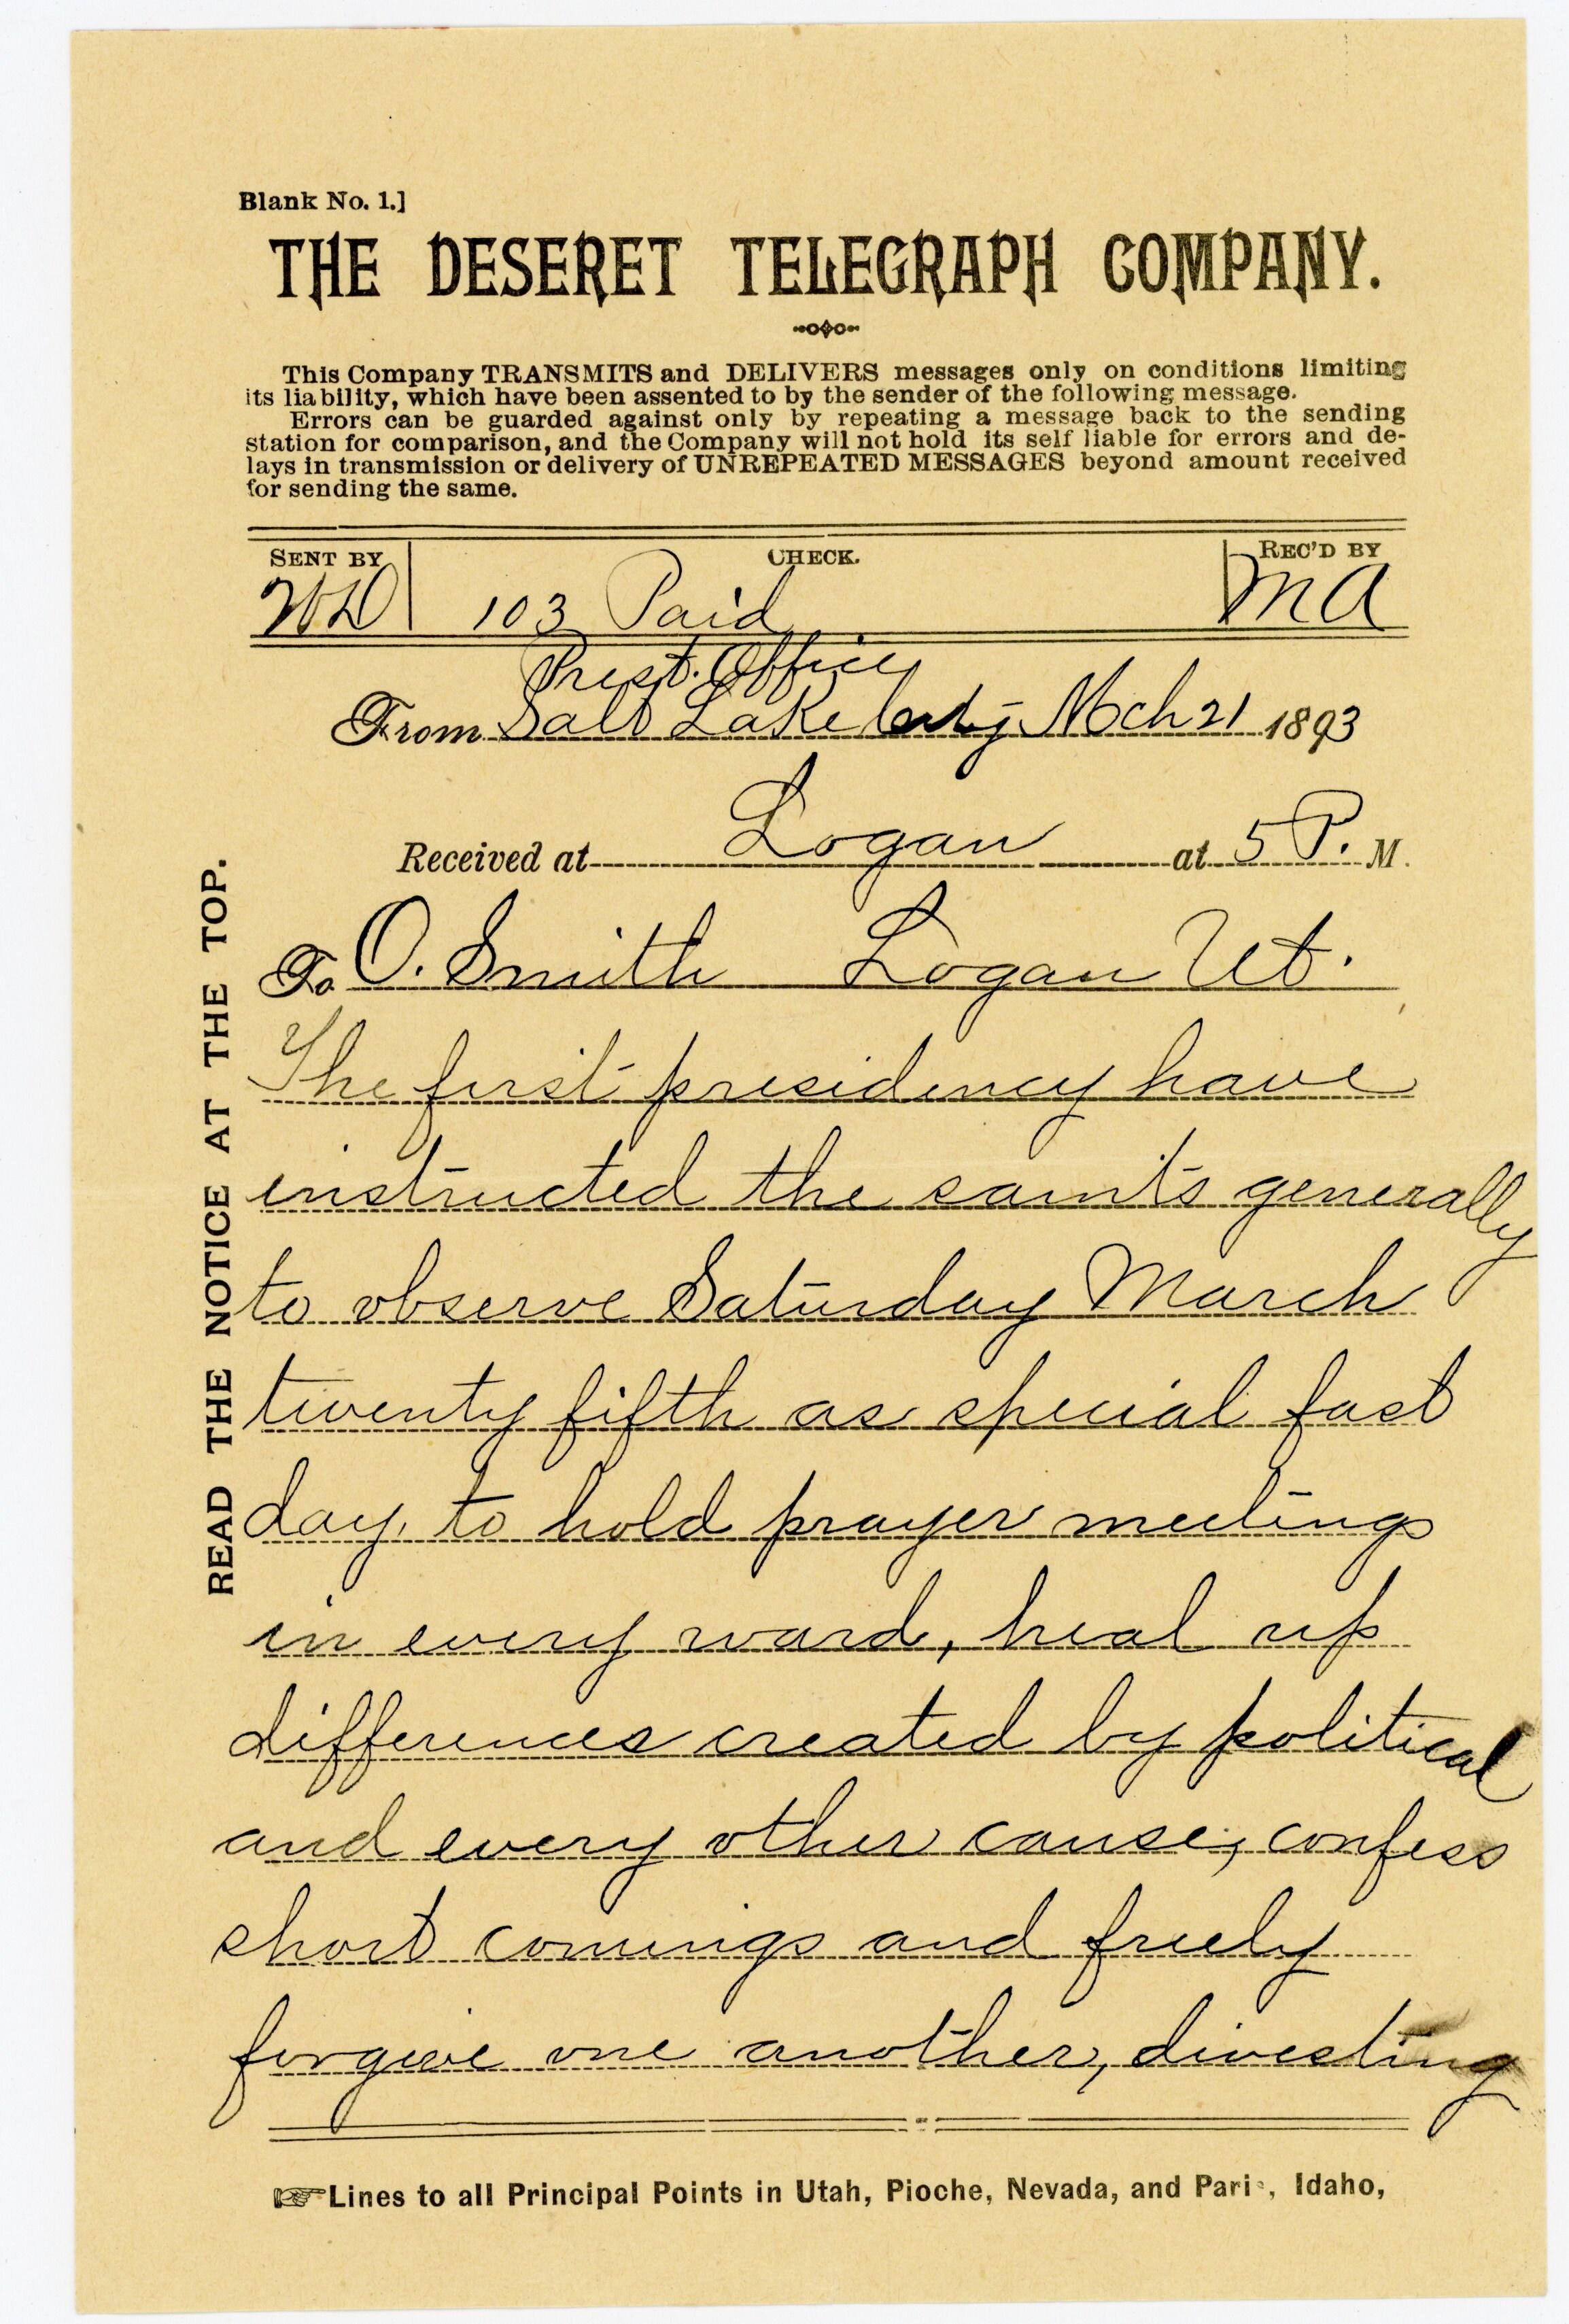 Blank No. 1.]
THE DESERET TELEGRAPH COMPANY.
This Company TRANSMITS and DELIVERS messages only on conditions limiting
its liability, which have been assented to by the sender of the following message.
Errors can be guarded against only by repeating a message back to the sending
station for comparison, and the Company will not hold its self liable for errors and de-
lays in transmission or delivery of UNREPEATED MESSAGES beyond amount received
for sending the same.
SENT BY CHECK. REC'D BY
103 Paid MA
Prest. Office
From Salt Lake City Mch 21 1893
Received at Logan at 5 P. M.
To O. Smith Logan Ut.
The first presidency have
instructed the saints generally
to observe Saturday March
twenty fifth as special fast
day, to hold prayer meetings
in every ward, heal up
differences created by political
and every other cause, confess
short comings and freely
forgive one another, divesting
Lines to all Principal Points in Utah, Pioche, Nevada, and Paris, Idaho,
READ THE NOTICE AT THE TOP.